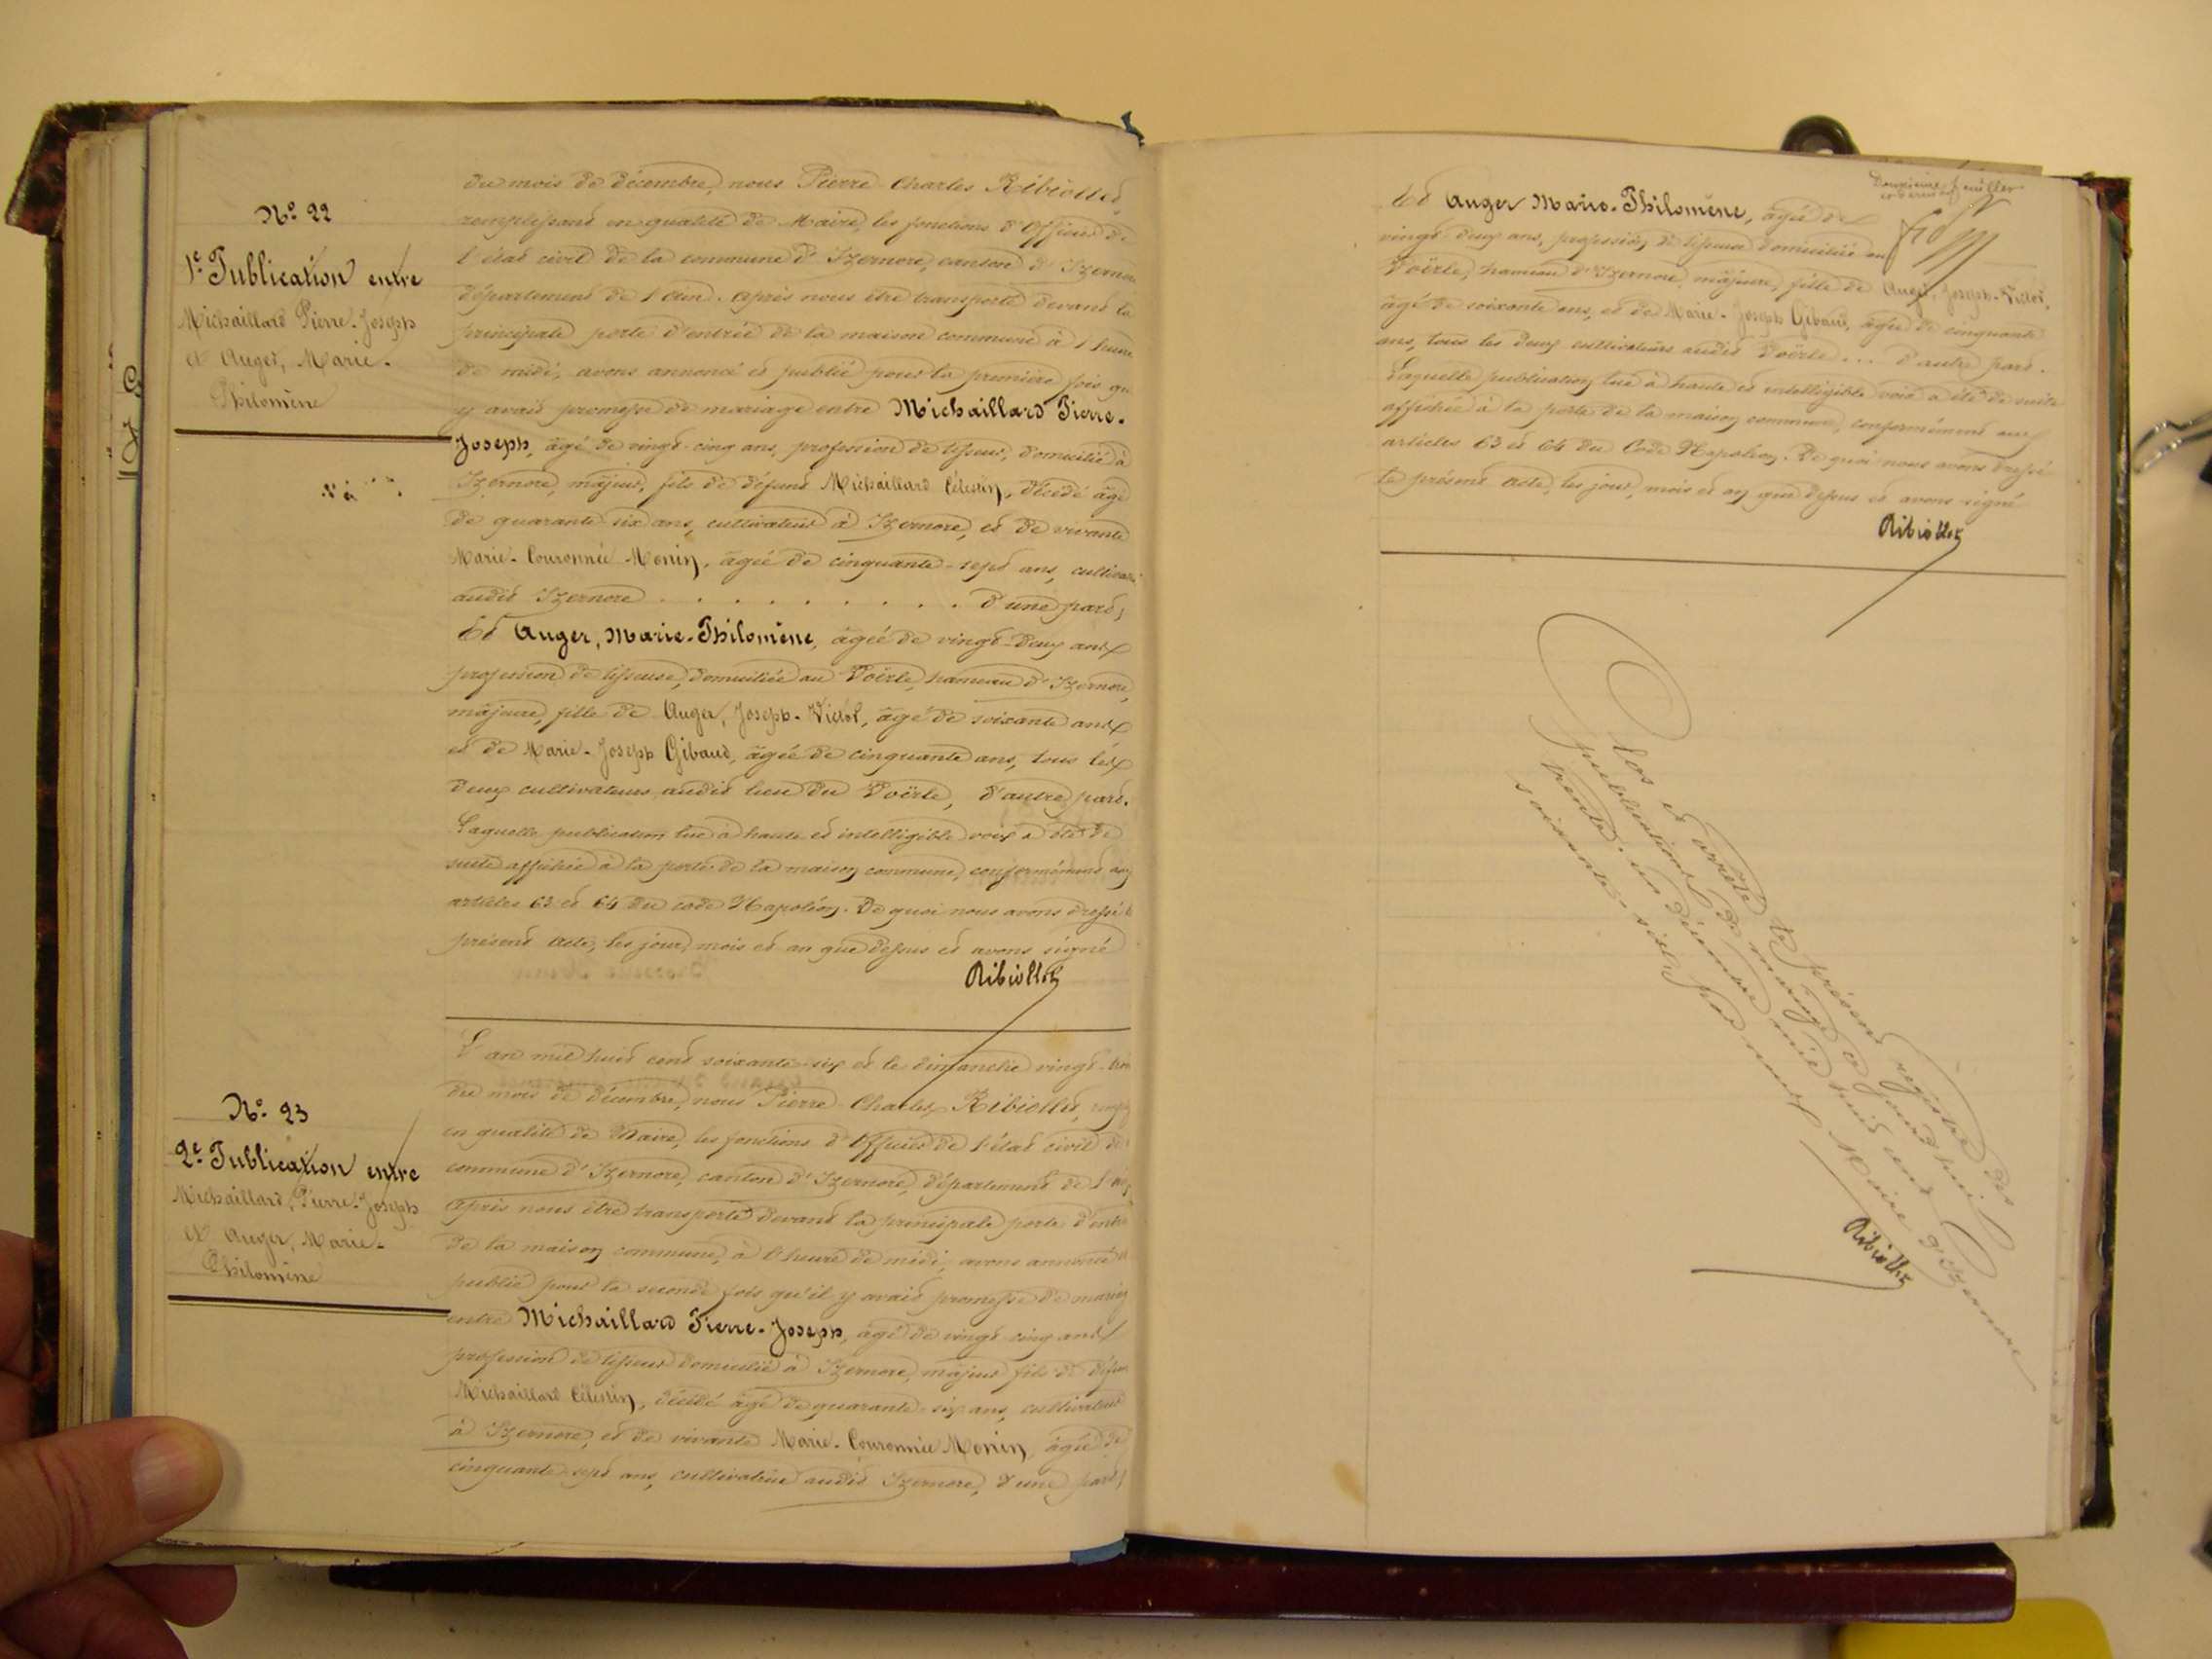 N.° 22
1.e Publication entre
Michaillard Pierre-Joseph
et Auger, Marie-
Philomène
du mois de décembre, nous Pierre Charles Ribiollet,
remplissant en qualité de Maire, les fonctions d'Officier de
l'état civil de la commune d'Izernore, canton d'Izernore
département de l'Ain. Après nous être transporté devant la
principale porte d'entrée de la maison commune à l'heure
de midi, avons annoncé et publié pour la première fois qu
y avait promesse de mariage entre Michaillard Pierre-
Joseph, âgé de vingt-cinq ans, profession de tisseur, domicilié à
Izernore, majeur, fils de défunt Michaillard Célestin, décédé âgé
de quarante six ans, cultivateur à Izernore, et de vivante
Marie-Couronnée Monin, âgée de cinquante-sept ans, cultivatri
audit Izernore . . . . . . . . . . d'une part,
Et Auger, Marie-Philomène, âgée de vingt-deux ans
profession de tisseuse, domiciliée au Voërle, hameau d'Izernore,
majeure, fille de Auger, Joseph-Victor, âgé de soixante ans
et de Marie-Joseph Gibaud, âgée de cinquante ans, tous les
deux cultivateurs audit lieu du Voërle, d'autre part.
Laquelle publication lue à haute et intelligible voix a été de
suite affichée à la porte de la maison commune, conformément aux
articles 63 et 64 du code Napoléon. De quoi nous avons dressé le
présent acte, les jour, mois et an que dessus et avons signé
Ribiollet
N.° 23
2.e Publication entre
Michaillard, Pierre-Joseph
et Auger, Marie-
Philomène
L'an mil huit cent soixante-six et le dimanche vingt-trois
du mois de décembre, nous Pierre Charles Ribiollet,
en qualité de Maire, les fonctions d'Officier de l'état civil de
commune d'Izernore, canton d'Izernore, département de l'Ain,
Après nous être transporté devant la principale porte d'entrée
de la maison commune, à l'heure de midi, avons annoncé et
publié pour la seconde fois qu'il y avait promesse de mariage
entre Michaillard Pierre-Joseph, âgé de vingt-cinq ans
profession de tisseur domicilié à Izernore, majeur fils de défunt
Michaillard Célestin, décédé âgé de quarante-six ans, cultivateur
à Izernore, et de vivante Marie-Couronnée Monin, âgée de
cinquante sept ans, cultivatrice audit Izernore, d'une part,
Et Auger Marie-Philomène, âgée de
vingt-deux ans, profession de tisseuse domiciliée au
Voërle, hameau d'Izernore, majeure, fille de Auger, Joseph-Victor,
âgé de soixante ans, et de Marie-Joseph Gibaud, âgée de cinquante
ans, tous les deux cultivateurs audit Voërle . . . d'autre part.
Laquelle publication lue à haute et intelligible voix a été de suite
affichée à la porte de la maison commune, conformément aux
articles 63 et 64 du Code Napoléon. De quoi nous avons dressé
le présent acte, les jour, mois et an que dessus et avons signé
Ribiollet
Clos et arrêté le présent registre des
publications de mariage aujourd'hui
trente-un décembre mil huit cent
soixante-six par nous Maire d'Izernore
Ribiollet